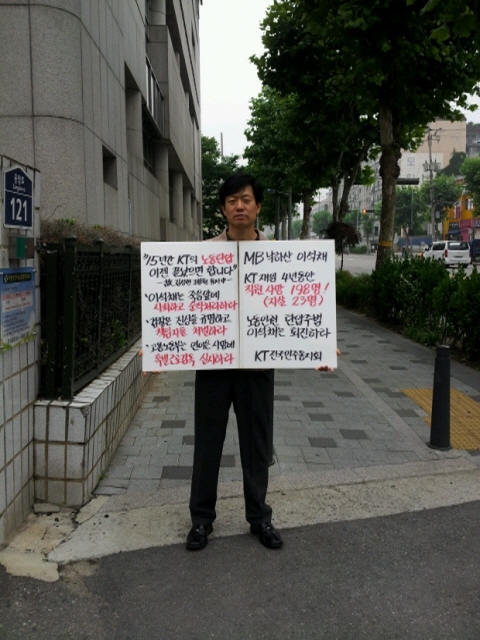 121
"15년간 KT의 노동탄압
이젠 끝났으면 합니다"
·이석채는 죽음앞에
사죄하고 순직처리하라
·검찰은 진상을 규명하고
책임자를 처벌하라
·고용노동부는 연이은 사망에
특별근로감독 실시하라
MB낙하산 이석채
KT 재임 4년동안
직원 사망 198명!
(자살 23명)
노동인권 탄압주범
이석채는 퇴진하라
KT전국민주동지회